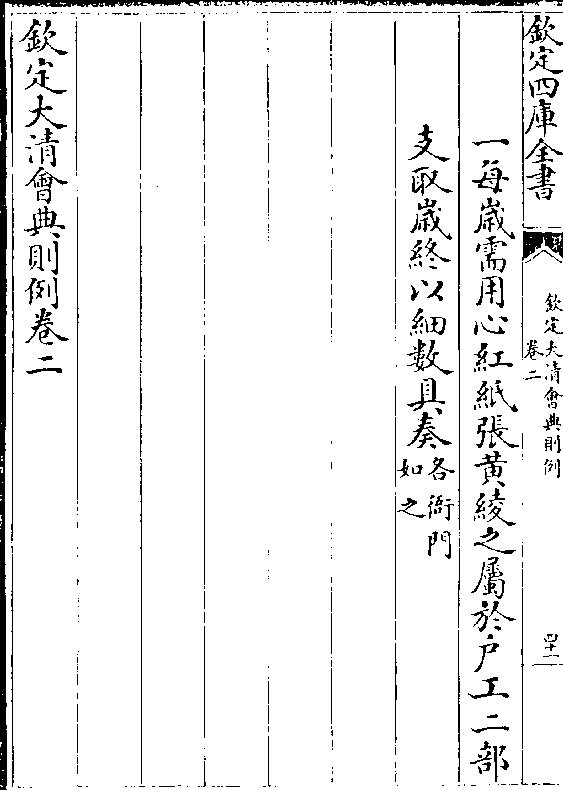 欽定四庫全書
欽定大清會典則例
卷二
四十一
一每歲需用心紅紙張黄綾之屬於户工二部
支取歲終以細數具奏各衙門
如之
欽定大清會典則例卷二